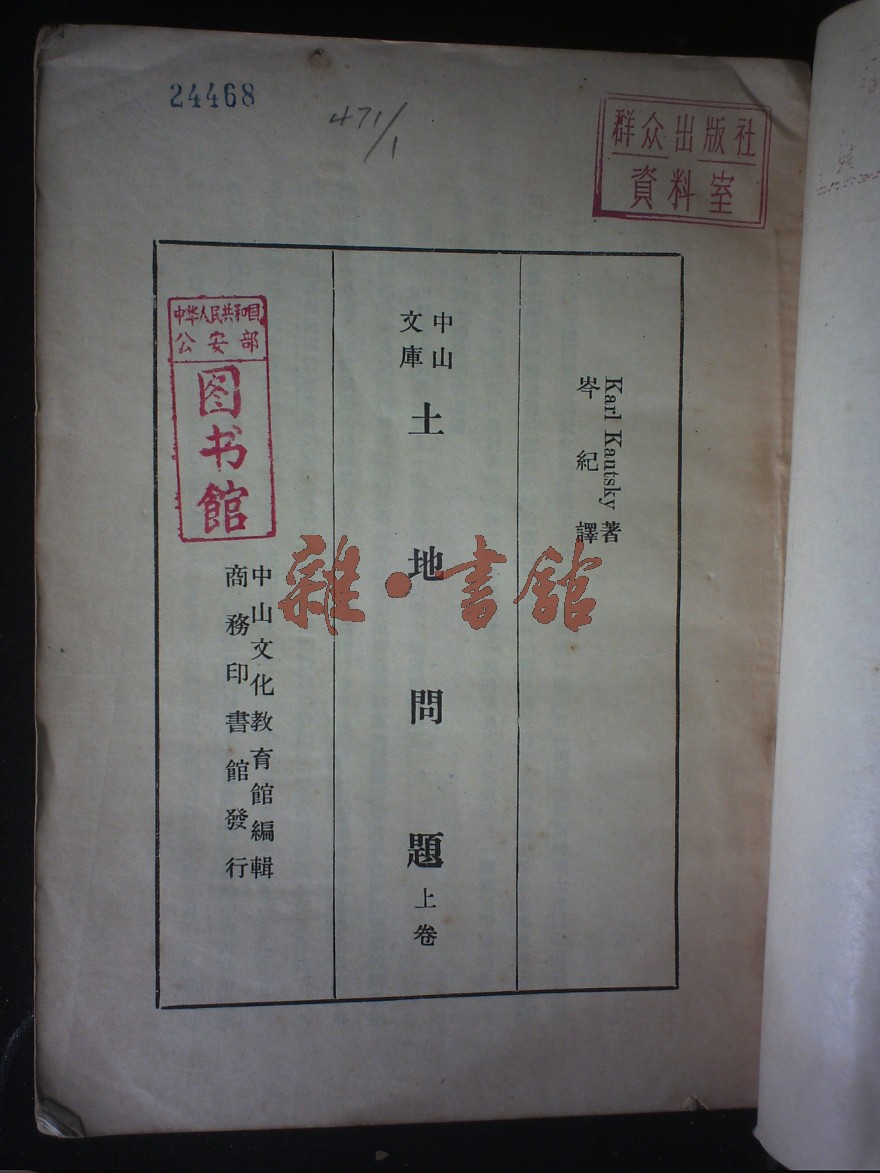 24468
471/1
群众出版社
資料室
Karl Kautsky 著
岑紀譯
中山
文庫
土地問題 上卷
中山文化教育館編輯
商務印書館發行
中华人民共和国
公安部
图书館
雜·書館